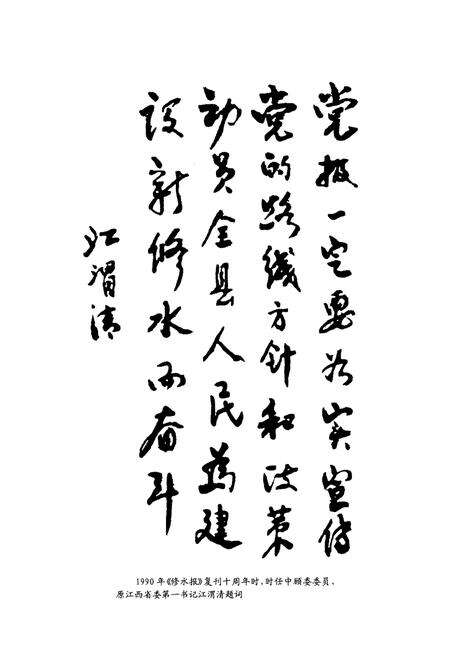 党报一定要如实宣传
党的路线方针和政策
动员全县人民為建
设新修水而奋斗
江渭清
1990年《修水报》复刊十周年时，时任中顾委委员、
原江西省委第一书记江渭清题词